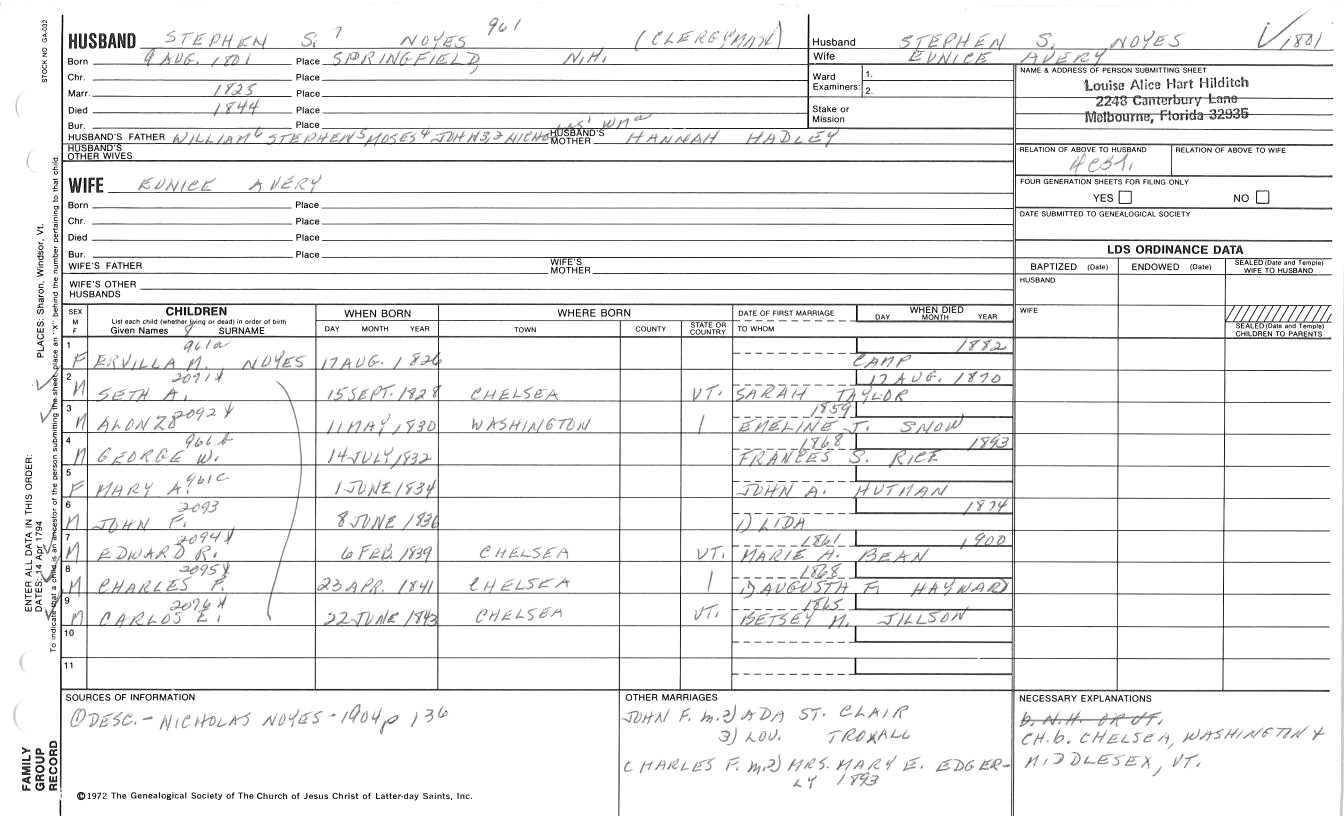 STOCK NO. GA-032
HUSBAND STEPHEN S. 7 NOYES 961 (CLERGYMAN)
Born 9 AUG. 1801 Place SPRINGFIELD, N.H.
Chr. Place
Marr. 1825 Place
Died 1844 Place
Bur. Place
HUSBAND'S FATHER WILLIAM6 STEPHEN5 MOSES4 JOHN3,2 NICHOLAS1 WMa HUSBAND'S MOTHER HANNAH HADLEY
HUSBAND'S OTHER WIVES
WIFE EUNICE AVERY
Born Place
Chr. Place
Died Place
Bur. Place
WIFE'S FATHER WIFE'S MOTHER
WIFE'S OTHER HUSBANDS
Husband STEPHEN S. NOYES √1801
Wife EUNICE AVERY
Ward Examiners: 1.
2.
Stake or Mission
NAME & ADDRESS OF PERSON SUBMITTING SHEET
Louise Alice Hart Hilditch
2248 Canterbury Lane
Melbourne, Florida 32935
RELATION OF ABOVE TO HUSBAND RELATION OF ABOVE TO WIFE
FOUR GENERATION SHEETS FOR FILING ONLY
YES NO
DATE SUBMITTED TO GENEALOGICAL SOCIETY
LDS ORDINANCE DATA
BAPTIZED (Date) ENDOWED (Date) SEALED (Date and Temple) WIFE TO HUSBAND
HUSBAND
WIFE
SEALED (Date and Temple) CHILDREN TO PARENTS
SEX M F
CHILDREN
List each child (whether living or dead) in order of birth
Given Names 8 SURNAME
WHEN BORN
DAY MONTH YEAR
WHERE BORN
TOWN COUNTY STATE OR COUNTRY
DATE OF FIRST MARRIAGE
TO WHOM
WHEN DIED
DAY MONTH YEAR
1 961a 1882
F ERVILLA M. NOYES 17 AUG. 1826 CAMP
2 2091 17 AUG. 1870
M SETH A. 15 SEPT. 1828 CHELSEA VT. SARAH TAYLOR
3 2092 1859
M ALONZO 11 MAY 1830 WASHINGTON | EMELINE J. SNOW
4 961b 1868 1893
M GEORGE W. 14 JULY 1832 FRANCES S. RICE
5 961c
F MARY A. 1 JUNE 1834 JOHN A. HUTMAN
6 2093 1874
M JOHN F. 8 JUNE 1836 1) LIDA
7 2094 1861 1900
M EDWARD R. 6 FEB. 1839 CHELSEA VT. MARIE A. BEAN
8 2095 1868
M CHARLES F. 23 APR. 1841 CHELSEA | 1) AUGUSTA F. HAYWARD
9 2096 1865
M CARLOS E. 22 JUNE 1843 CHELSEA VT. BETSEY M. JILLSON
10
11
SOURCES OF INFORMATION
① DESC. - NICHOLAS NOYES - 1904 p 136
OTHER MARRIAGES
JOHN F. m. 2) ADA ST. CLAIR
3) LOU. TROXALL
CHARLES F. m. 2) MRS. MARY E. EDGER-
LY 1893
NECESSARY EXPLANATIONS
b. N.H. OR VT.
CH. b. CHELSEA, WASHINGTON +
MIDDLESEX, VT.
©1972 The Genealogical Society of The Church of Jesus Christ of Latter-day Saints, Inc.
FAMILY
GROUP
RECORD
ENTER ALL DATA IN THIS ORDER:
DATES: 14 Apr 1794 PLACES: Sharon, Windsor, Vt.
To indicate that a child is an ancestor of the person submitting the sheet, place an "X" behind the number pertaining to that child.